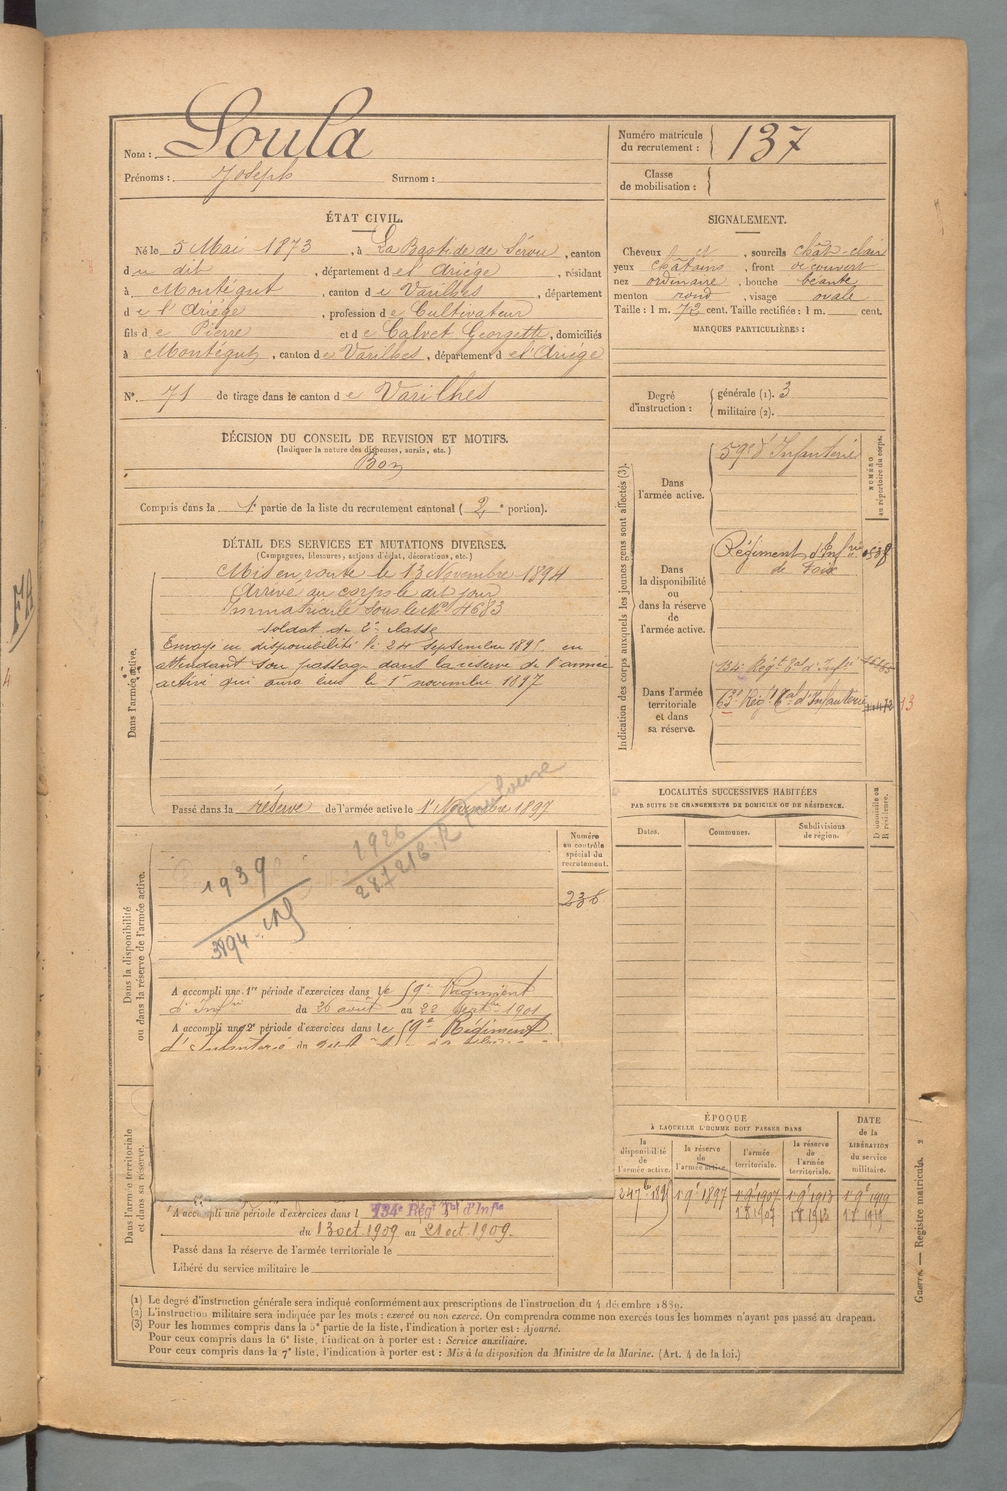 Nom : Soula
Prénoms : Joseph Surnom :
Numéro matricule du recrutement : 137
Classe de mobilisation :
ÉTAT CIVIL.
Né le 5 Mai 1873, à La Bastide de Sérou, canton
du dit, département de l'Ariège, résidant
à Montégut, canton de Varilhes, département
de l'Ariége, profession de Cultivateur
fils de Pierre et de Calvet Georgette, domiciliés
à Montégut, canton de Varilhes, département de l'Ariége
N° 71 de tirage dans le canton de Varilhes
SIGNALEMENT.
Cheveux, sourcils chât-clair
yeux châtains, front découvert
nez ordinaire, bouche béante
menton rond, visage ovale
Taille : 1 m. 72 cent. Taille rectifiée : 1 m. cent.
MARQUES PARTICULIÈRES :
Degré d'instruction : générale (1). 3
militaire (2).
DÉCISION DU CONSEIL DE REVISION ET MOTIFS.
(Indiquer la nature des dispenses, sursis, etc.)
Bon
Compris dans la 1e partie de la liste du recrutement cantonal (2e portion).
DÉTAIL DES SERVICES ET MUTATIONS DIVERSES.
(Campagnes, blessures, actions d'éclat, décorations, etc.)
Dans l'armée active.
Mis en route le 13 Novembre 1894
Arrivé au corps le dit jour
Immatriculé sous le No 4683
soldat de 2e classe
Envoyé en disponibilité le 24 septembre 1895 en
attendant son passage dans la réserve de l'armée
active qui aura lieu le 1er novembre 1897
Passé dans la réserve de l'armée active le 1er Novembre 1897
Indication des corps auxquels les jeunes gens sont affectés (3).
NUMÉRO au répertoire du corps.
Dans l'armée active.
59e d'Infanterie
Dans la disponibilité ou dans la réserve de l'armée active.
Régiment d'Infrie
de Foix
Dans l'armée territoriale et dans sa réserve.
134e Régt Tal d'Infie
63e Régt Tal d'Infanterie
13
LOCALITÉS SUCCESSIVES HABITÉES
PAR SUITE DE CHANGEMENTS DE DOMICILE OU DE RÉSIDENCE.
Dates. Communes. Subdivisions de région. Domicile ou Résidence.
Dans la disponibilité ou dans la réserve de l'armée active.
Numéro au contrôle spécial du recrutement.
236
1926
28721 B R Toulouse
1939
A accompli une 1re période d'exercices dans le 59e Régiment
d'Infrie du 26 août au 22 septbre 1901
A accompli une 2e période d'exercices dans le 59e Régiment
d'Infanterie du
Dans l'armée territoriale et dans sa réserve.
A accompli une période d'exercices dans l 134e Régt Tal d'Infie
du 13 oct 1909 au 21 oct 1909.
Passé dans la réserve de l'armée territoriale le
Libéré du service militaire le
ÉPOQUE
À LAQUELLE L'HOMME DOIT PASSER DANS
la disponibilité de l'armée active.
la réserve de l'armée active.
l'armée territoriale.
la réserve de l'armée territoriale.
DATE de la LIBÉRATION du service militaire.
24 7bre 1895 1 9e 1897 1 9e 1907 1 9e 1913 1 9e 1919
(1) Le degré d'instruction générale sera indiqué conformément aux prescriptions de l'instruction du 4 décembre 1889.
(2) L'instruction militaire sera indiquée par les mots : exercé ou non exercé. On comprendra comme non exercés tous les hommes n'ayant pas passé au drapeau.
(3) Pour les hommes compris dans la 5e partie de la liste, l'indication à porter est : Ajourné.
Pour ceux compris dans la 6e liste, l'indication à porter est : Service auxiliaire.
Pour ceux compris dans la 7e liste, l'indication à porter est : Mis à la disposition du Ministre de la Marine. (Art. 4 de la loi.)
Guerre. — Registre matricule.